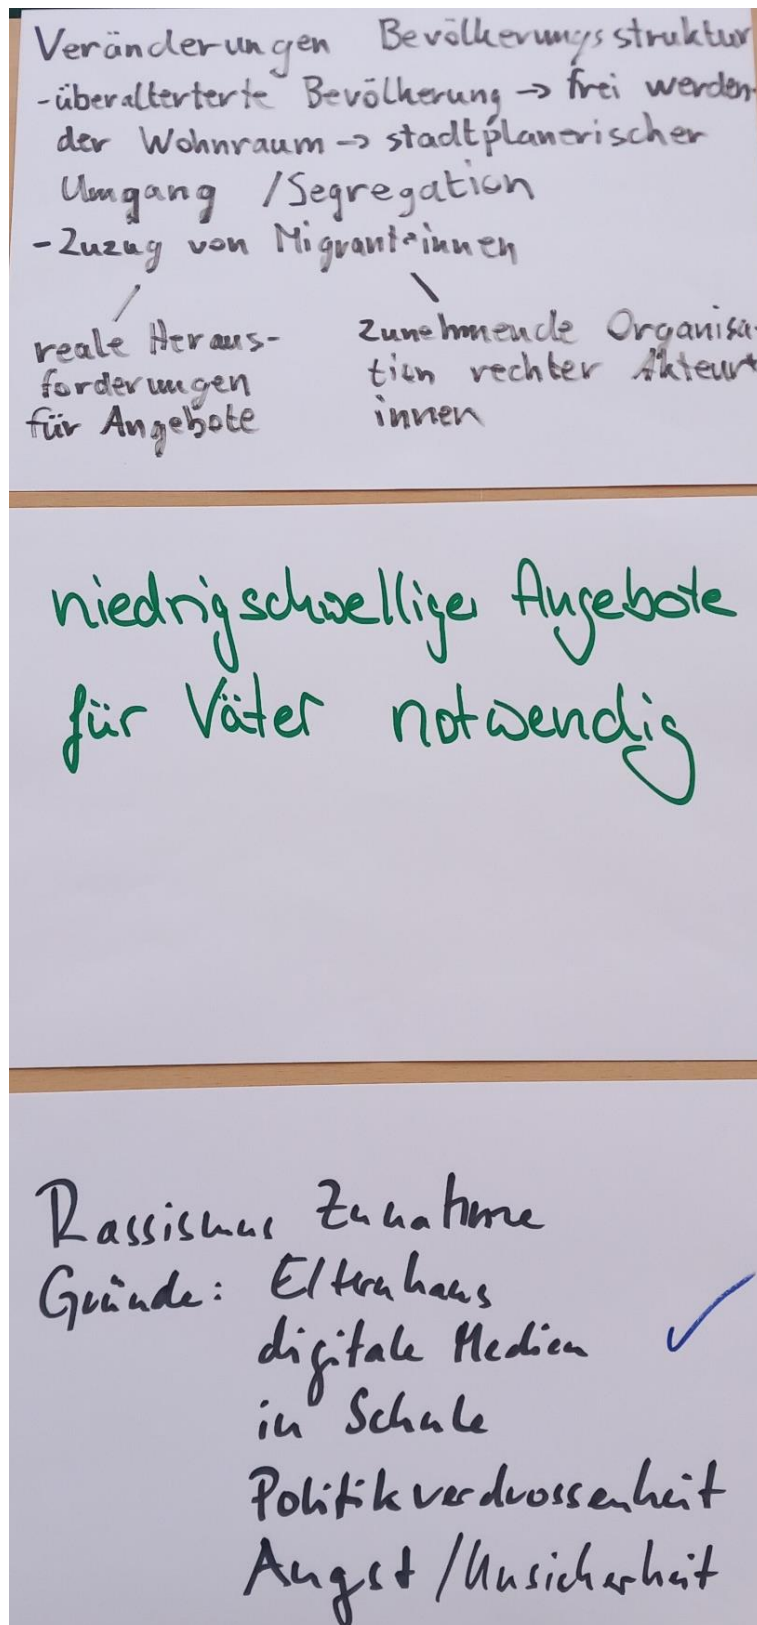 Veränderungen Bevölkerungsstruktur
-überalterterte Bevölkerung → frei werden-
der Wohnraum → stadtplanerischer
Umgang /Segregation
- Zuzug von Migrant*innen
reale Heraus-
forderungen
für Angebote
zunehmende Organisa-
tion rechter Akteur*
innen
niedrigschwellige Angebote
für Väter notwendig
Rassismus Zunahme
Gründe: Elternhaus
digitale Medien
in Schule
Politikverdrossenheit
Angst / Unsicherheit